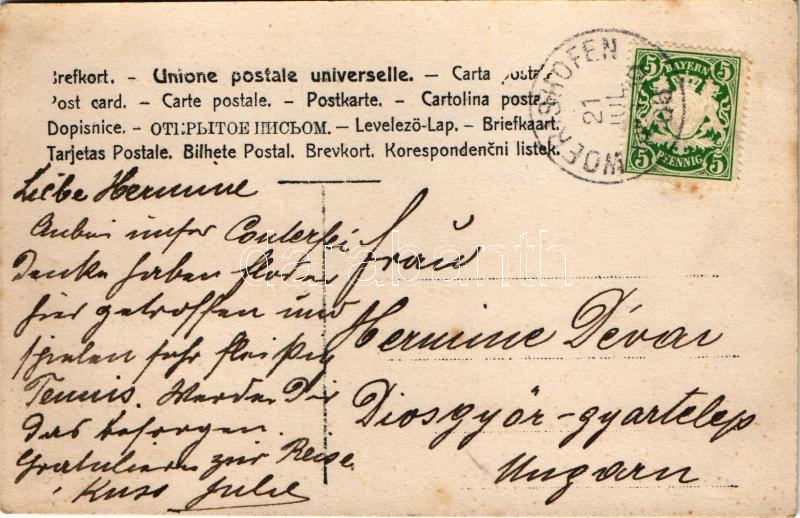 Brefkort. – Unione postale universelle. – Carta postale
Post card. – Carte postale. – Postkarte. – Cartolina postale
Dopisnice. – ОТКРЫТОЕ ПИСЬОМ. – Levelezö-Lap. – Briefkaart.
Tarjetas Postale. Bilhete Postal. Brevkort. Korespondenčni listek.
WOERISHOFEN
21 JUL
BAYERN
5 5
5 PFENNIG 5
Liebe Hermine
Anbei unser Conterfei
Denke haben
hier getroffen und
spielen sehr fleißig
Tennis. Werde Dir
das besorgen.
Gratulieren zur Reise.
Kuss Julie
Frau
Hermine Dévai
Diosgyör-gyartelep
Ungarn
darabanth